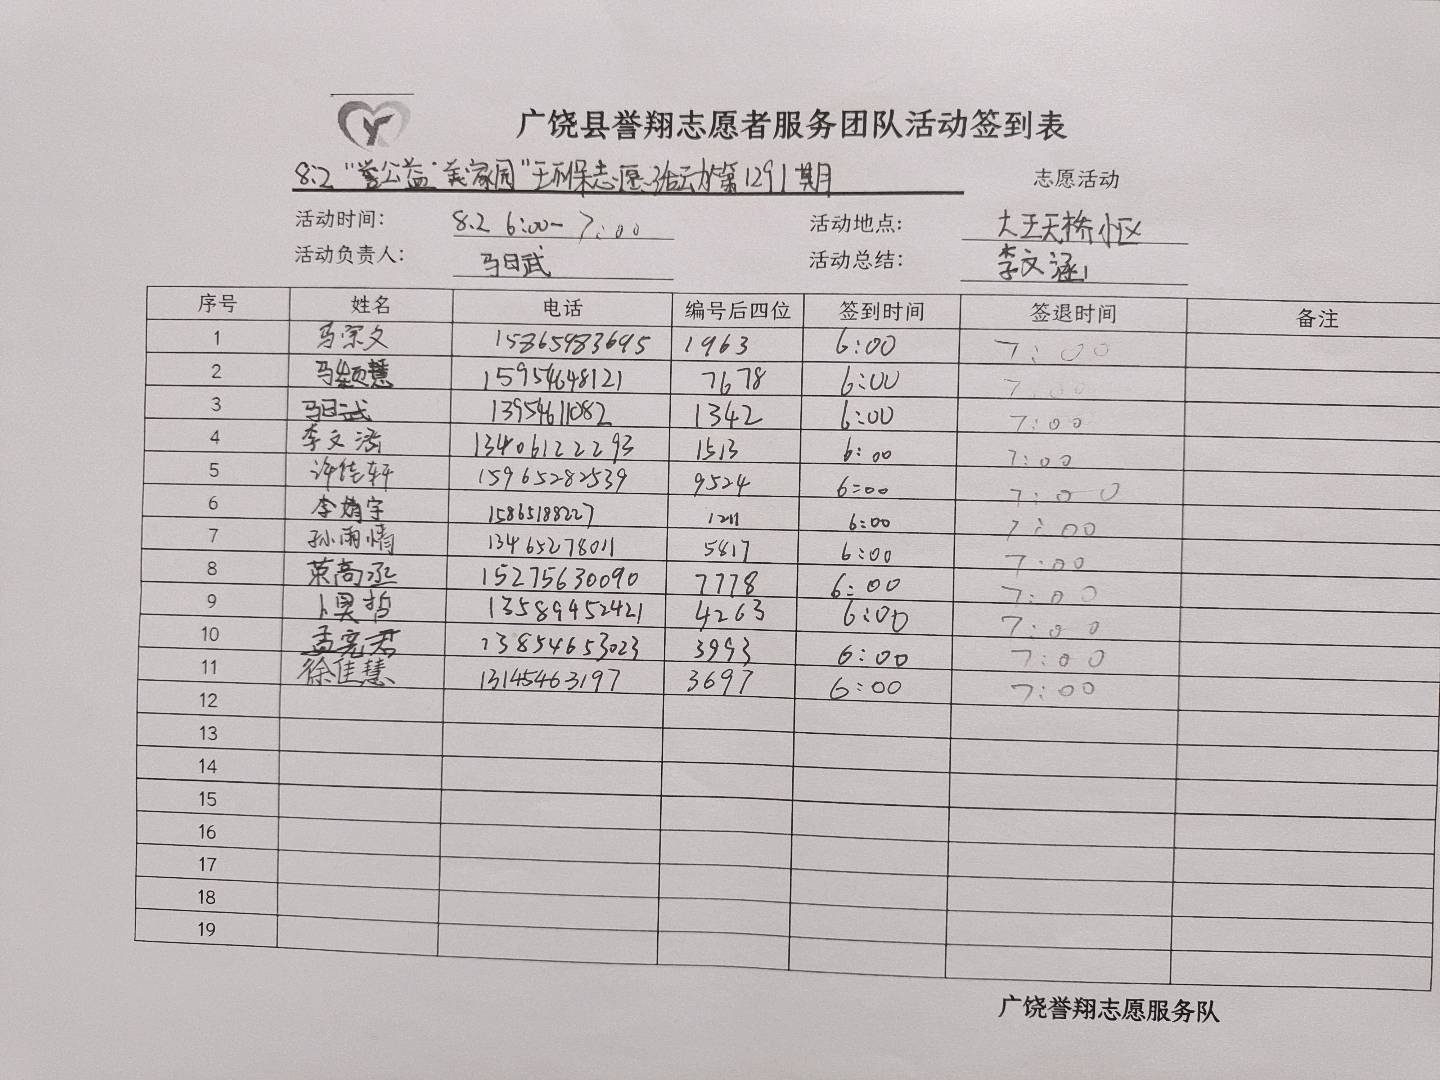 广饶县誉翔志愿者服务团队活动签到表
8.2 "誉公益·美家园"环保志愿活动第1291期 志愿活动
活动时间: 8.2 6:00-7:00 活动地点: 大王天桥小区
活动负责人: 马日武 活动总结: 李文涵
序号 姓名 电话 编号后四位 签到时间 签退时间 备注
1 马宗文 15865983695 1963 6:00 7:00
2 马颖慧 15954648121 7678 6:00 7:00
3 马日武 13954611082 1342 6:00 7:00
4 李文涵 13406122293 1513 6:00 7:00
5 许佳轩 15965282539 9524 6:00 7:00
6 李婧宇 15865188227 1211 6:00 7:00
7 孙雨情 13465278011 5817 6:00 7:00
8 荣高丞 15275630090 7778 6:00 7:00
9 卜昊哲 13589952421 4263 6:00 7:00
10 孟亮君 13854653023 3993 6:00 7:00
11 徐佳慧 13145463197 3697 6:00 7:00
12
13
14
15
16
17
18
19
广饶誉翔志愿服务队